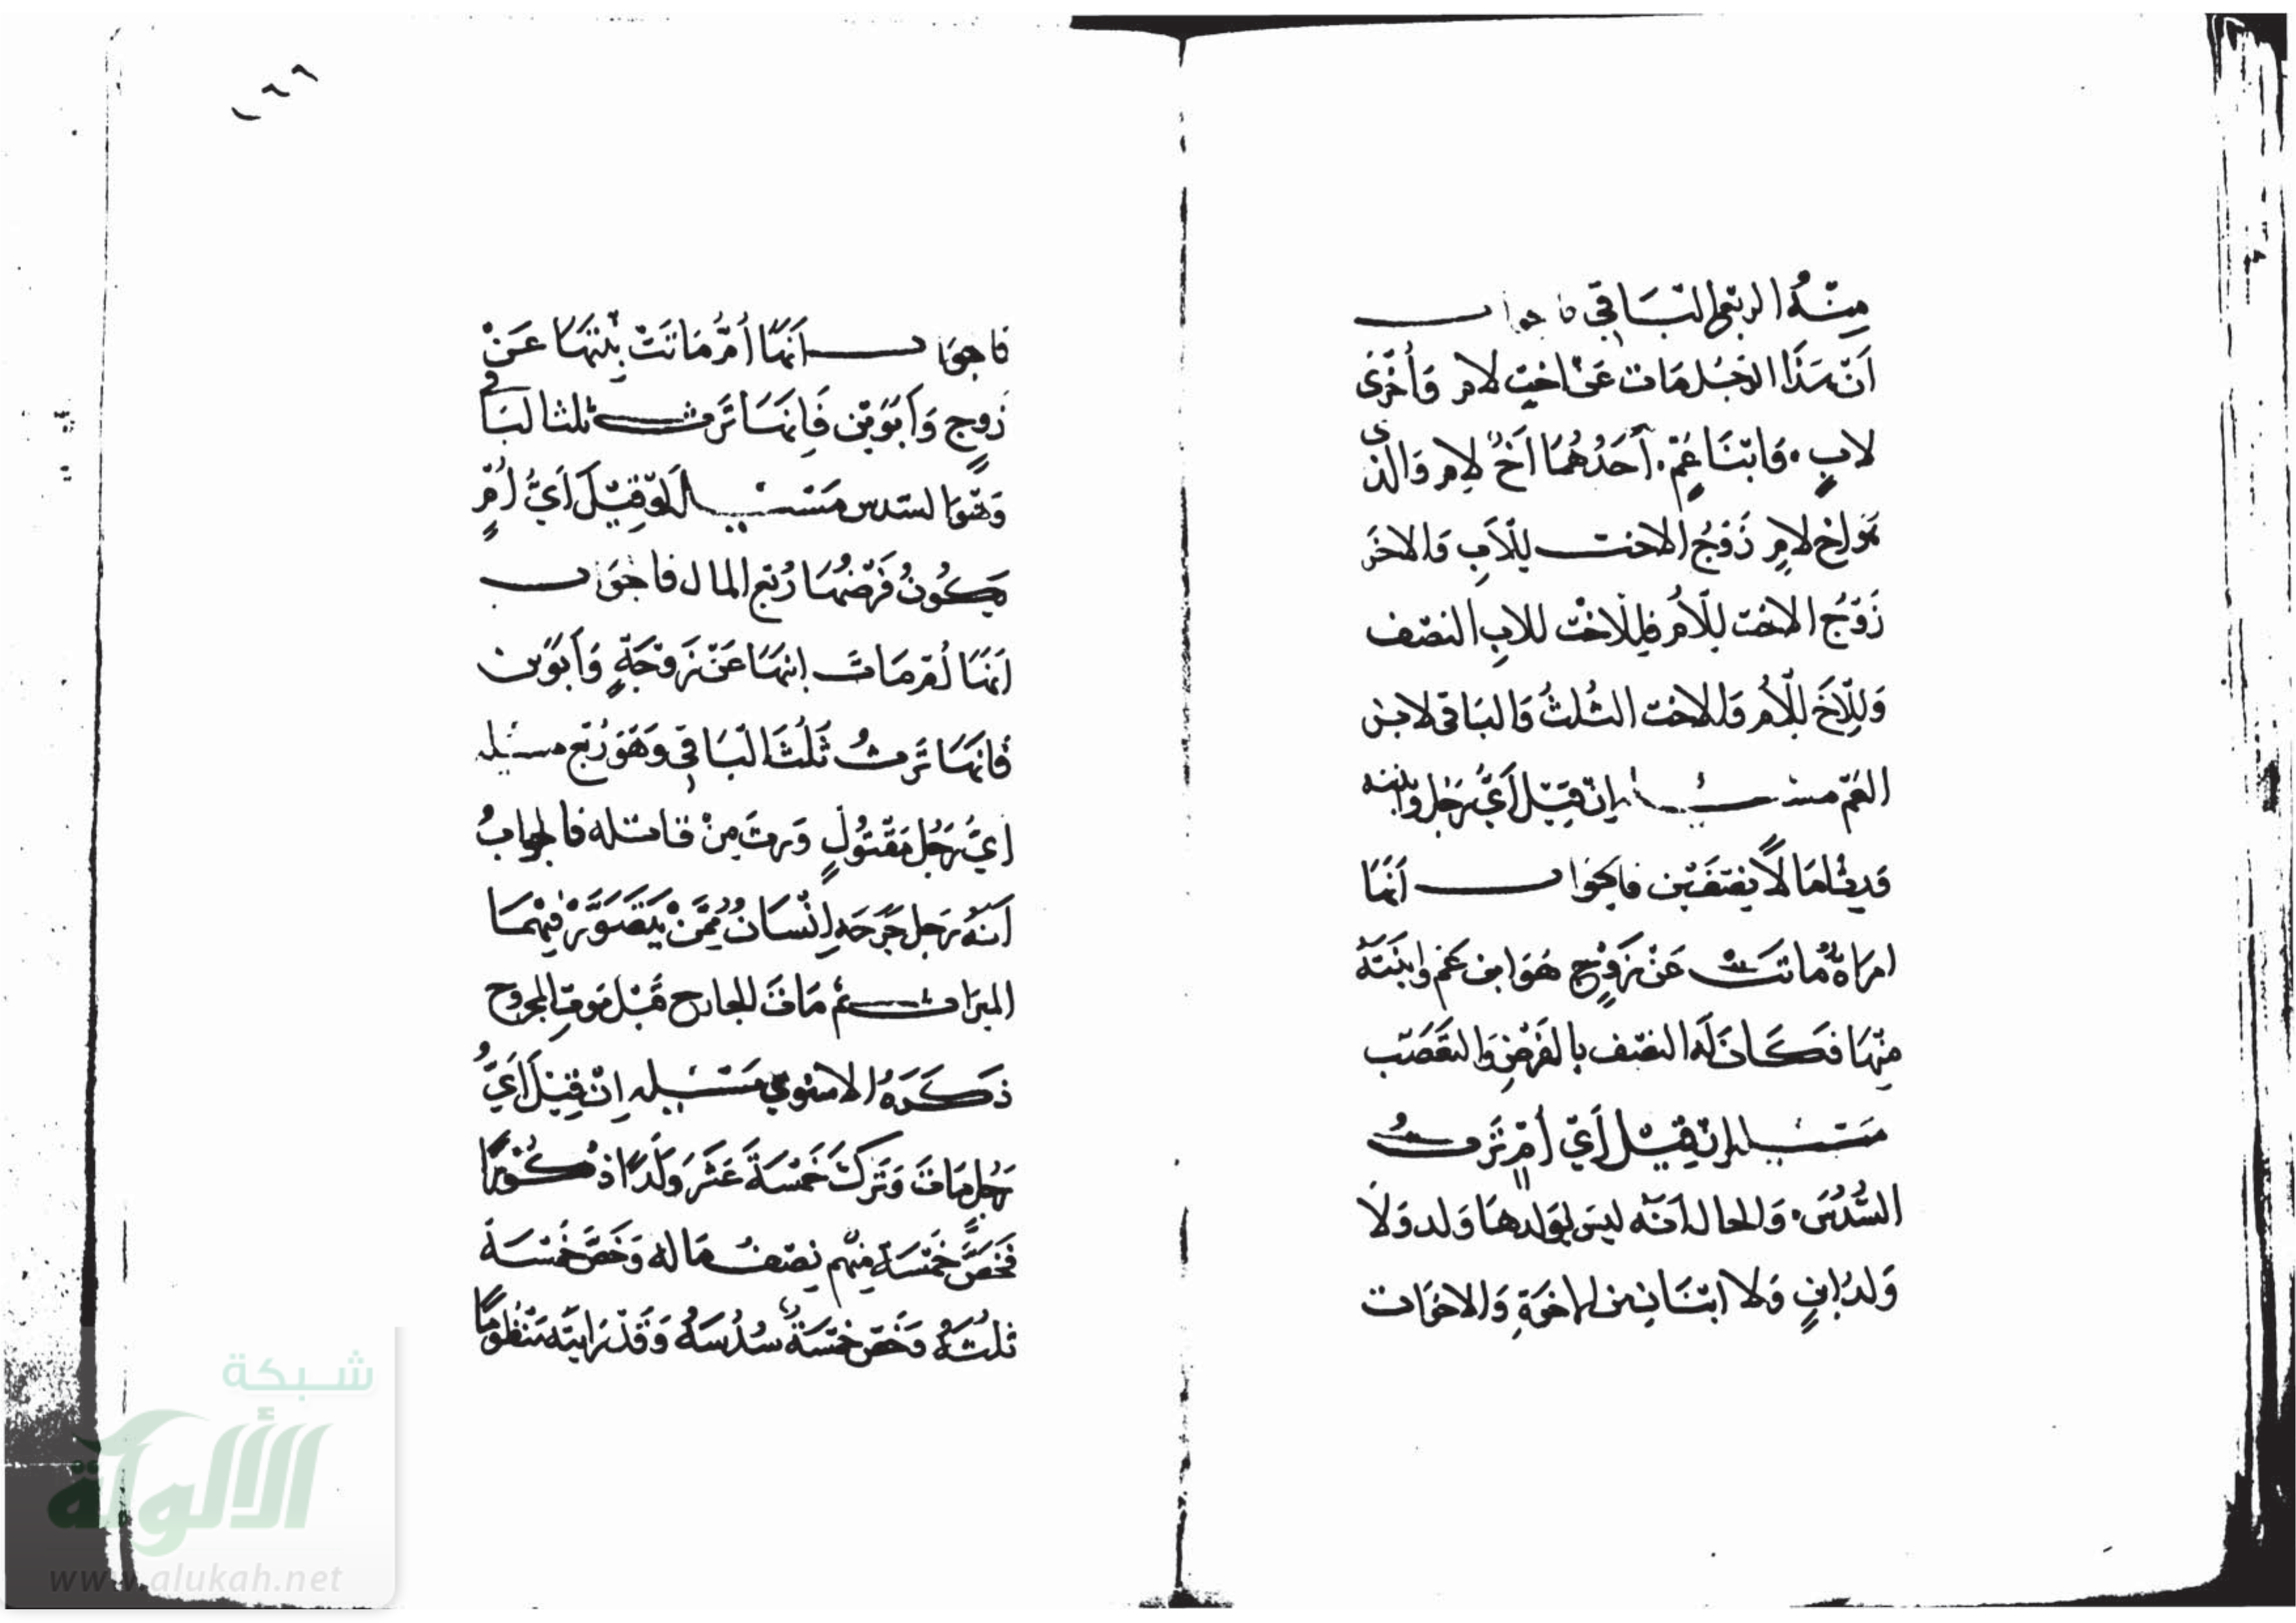 مِنْهُ الربع البَاقِي فاجواب
أَنَّ هَذَا الرَّجُل مَات عَنْ اختٍ لام وَأُخْرَى
لابٍ وَابْنَا عَمٍّ أَحَدُهُمَا أَخٌ لِام وَالذي
هَو اخ لامٍ زَوْجُ الاخت لِلْأَبِ وَالاخَر
زَوْجُ الاخت لِلْأُم فللاخت للابِ النصف
وَلِلْأَخ لِلْأُم وَللاخت الثُلثُ وَالبَاقى لابن
العَمّ مسئله إن قِيْل أَيُّ رَجُل وابنته
ورثا مَالًا نِصْفَيْن فالجوَاب أَنهَا
امرَاةٌ مَاتَت عَنْ زَوْجٍ هُوَ ابن عَم وابْنَتَهُ
مِنْهَا فكَانَ لَهُ النصْف بالفَرْضِ وَالتَّعَصِيْب
مَسْئله إن قِيْل أَيّ أُمٍّ تَرثُ
السُّدُسَ وَالحال أَنَّه ليسَ لِوَلدِهَا وَلد وَلَا
وَلدُ ابنٍ وَلا اثْنَان مِن الاخوَةِ وَالاخوَات
فاجوَاب أَنهَا أُمٌّ مَاتَتْ بِنْتهَا عَنْ
زَوجٍ وَأَبَوَيْن فَإِنهَا تَرث ثلث البَاقي
وَهُوَ السدس مَسْئله لَو قِيْلَ أَيُّ أُمٍّ
يَكُونُ فَرْضُهَا رُبْع المال فاجوَاب
أنهَا أُم مَات ابنهَا عَنْ زَوْجَةٍ وَأَبَوَين
فَانَهَا تَرثُ ثُلُثَ البَاقِي وَهوَ رُبْع مسئله
أَيُّ رَجُل مَقْتُولٍ وَرِثَ مِنْ قاتله فالجوابُ
أَنَهُ رَجل جَرَحَه إِنْسَانٌ مِمَّنْ يَتَصَوَّرْ فِيْهمَا
الميرَاث ثم مَاتَ الجارح قَبْل مَوتِ المجروح
ذكَرَهُ الاسنوي مَسْئله إِنْ قِيْل أَيُّ
رَجُل مَاتَ وَتَرَكَ خَمْسَةَ عَشَرَ وَلَدًا ذُكُوْرًا
فَخَصَّ خَمْسَة مِنْهُم نِصْفُ مَاله وَخَصَّ خَمْسَةً
ثلُثَهُ وَخَصّ خَمْسَةً سُدُسَهُ وَقَدْ رَايته مَنْظُومًا
١٦٦
شبكة
الألوكة
www.alukah.net